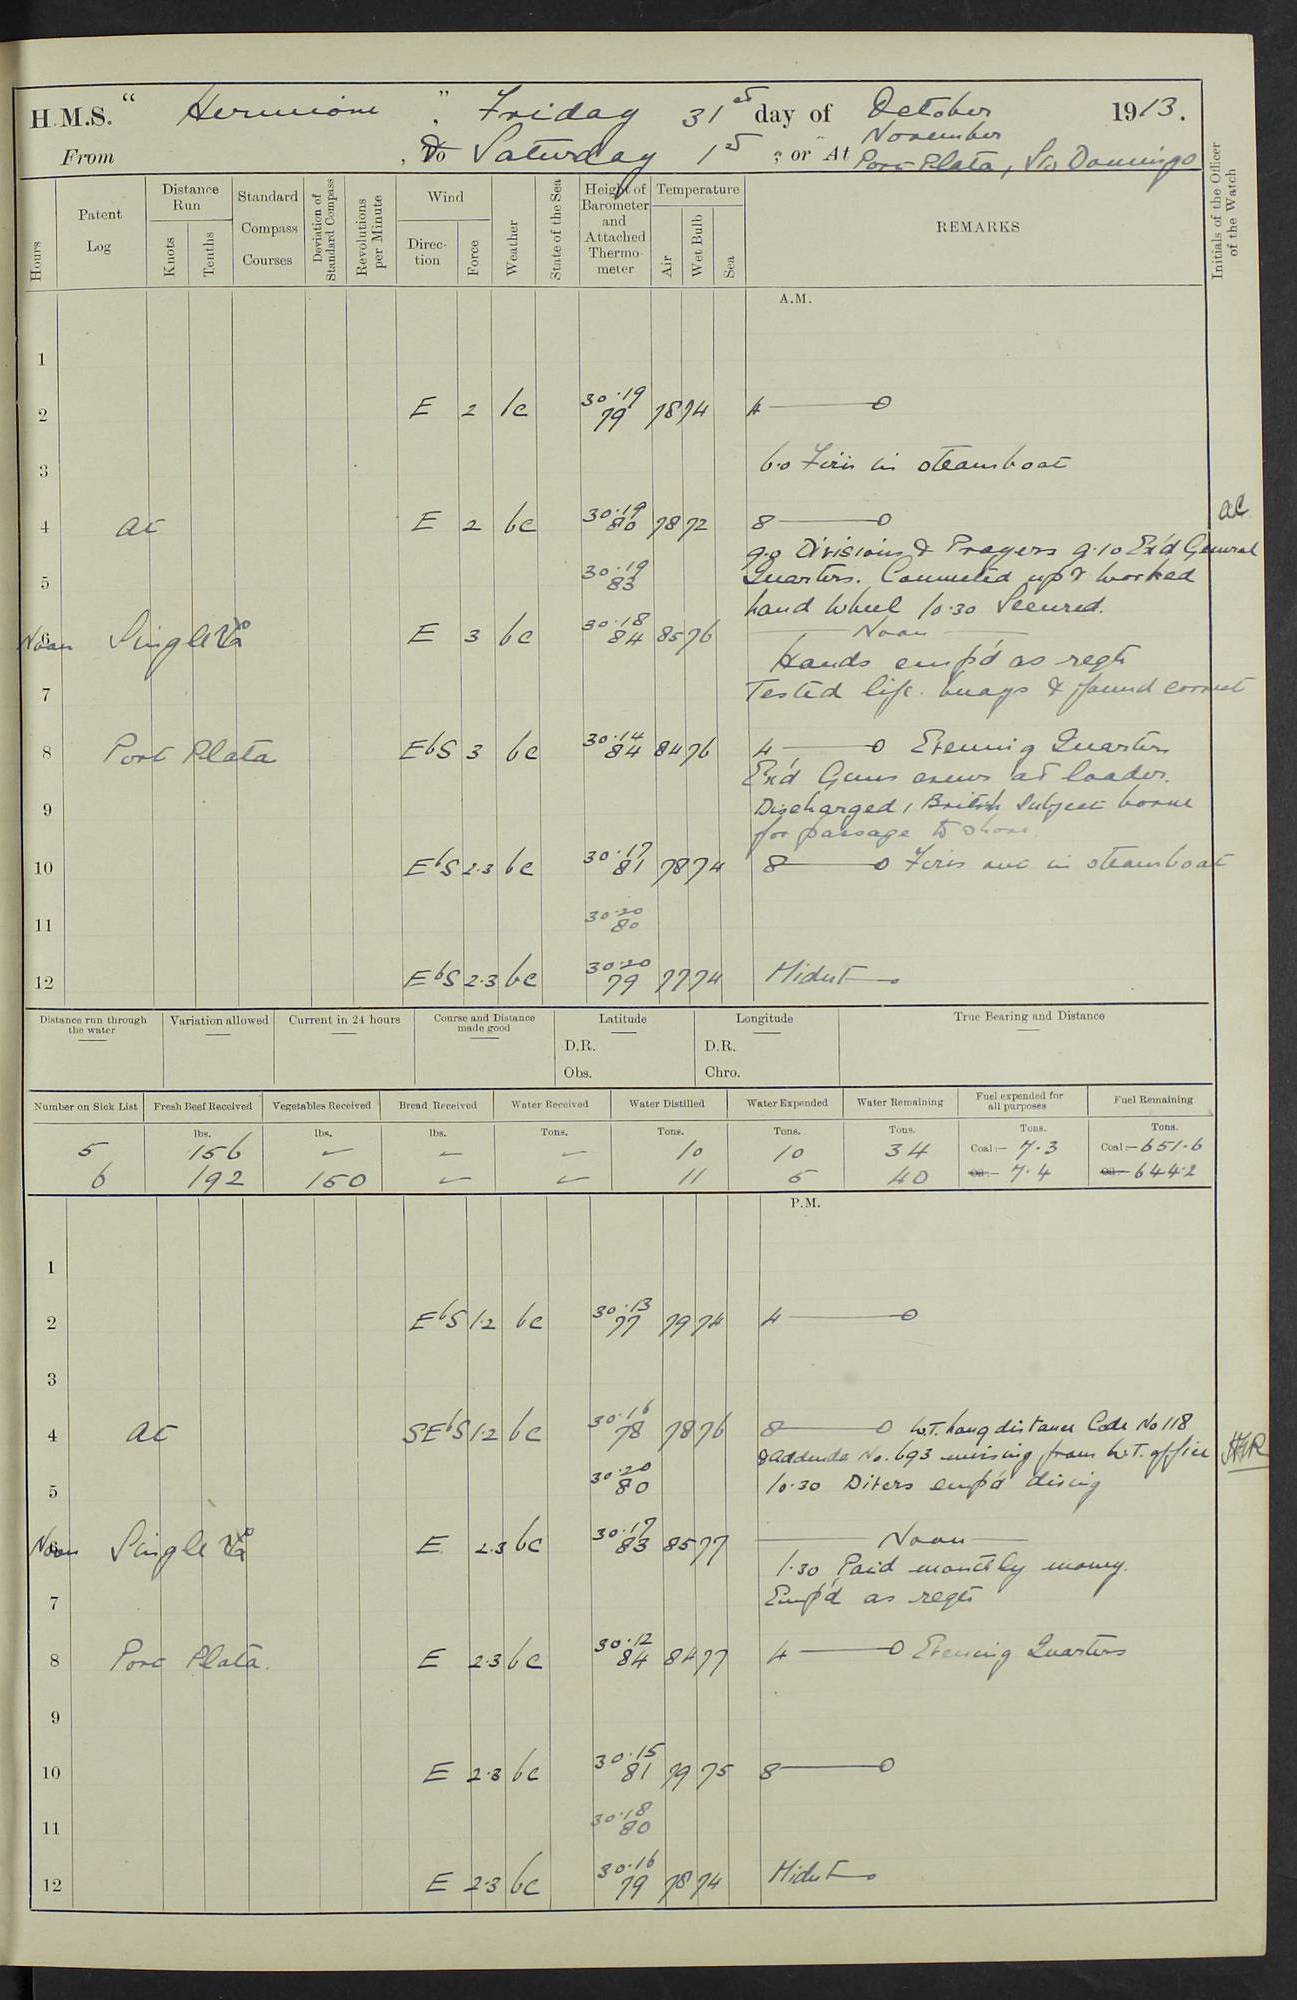 H.M.S. " Hermione ", Friday 31st day of October 1913.
From , & To Saturday 1st , or At November
Port Plata, Sto Domingo
Hours Patent Log Distance Run Knots Tenths Standard Compass Courses Deviation of Standard Compass Revolutions per Minute Wind Direction Force Weather State of the Sea Height of Barometer and Attached Thermometer Temperature Air Wet Bulb Sea REMARKS Initials of the Officer of the Watch
A.M.
1
2 E 2 bc 30.19 79 78 74 4 —— 0
3 6.0 Fires in steamboat
4 at E 2 bc 30.19 80 78 72 8 —— 0 AC
9.0 Divisions & Prayers 9.10 Ex'd General
5 30.19 83 Quarters. Connected up & worked
hand wheel 10.30 Secured.
6 Noon Single E 3 bc 30.18 84 85 76 —— Noon ——
Hands emp'd as reqte
7 Tested life buoys & found correct
8 Port Plata EbS 3 bc 30.14 84 84 76 4 —— 0 Evening Quarters
Ex'd Guns crews at loader.
9 Discharged 1 British Subject borne
for passage to shore.
10 EbS 2.3 bc 30.17 81 78 74 8 —— 0 Fires out in steamboat
11 30.20 80
12 EbS 2.3 bc 30.20 79 77 74 Midnt
Distance run through the water Variation allowed Current in 24 hours Course and Distance made good Latitude Longitude True Bearing and Distance
D.R. D.R.
Obs. Chro.
Number on Sick List Fresh Beef Received Vegetables Received Bread Received Water Received Water Distilled Water Expended Water Remaining Fuel expended for all purposes Fuel Remaining
lbs. lbs. lbs. Tons. Tons. Tons. Tons. Tons. Tons.
5 156 — — — 10 10 34 Coal:— 7.3 Coal:— 651.6
6 192 150 — — 11 5 40 Oil:— 7.4 Oil:— 644.2
P.M.
1
2 EbS 1.2 bc 30.13 77 79 74 4 —— 0
3
4 at SEbS 1.2 bc 30.16 78 78 76 8 —— 0 W.T. Long distance Code No 118
& Addenda No. 693 missing from W.T. office
5 30.20 80 10.30 Divers emp'd diving
6 Noon Single E 2.3 bc 30.17 83 85 77 —— Noon ——
1.30 Paid monthly money.
7 Emp'd as reqte
8 Port Plata. E 2.3 bc 30.12 84 84 77 4 —— 0 Evening Quarters
9
10 E 2.3 bc 30.15 81 79 75 8 —— 0
11 30.18 80
12 E 2.3 bc 30.16 79 78 74 Midnt